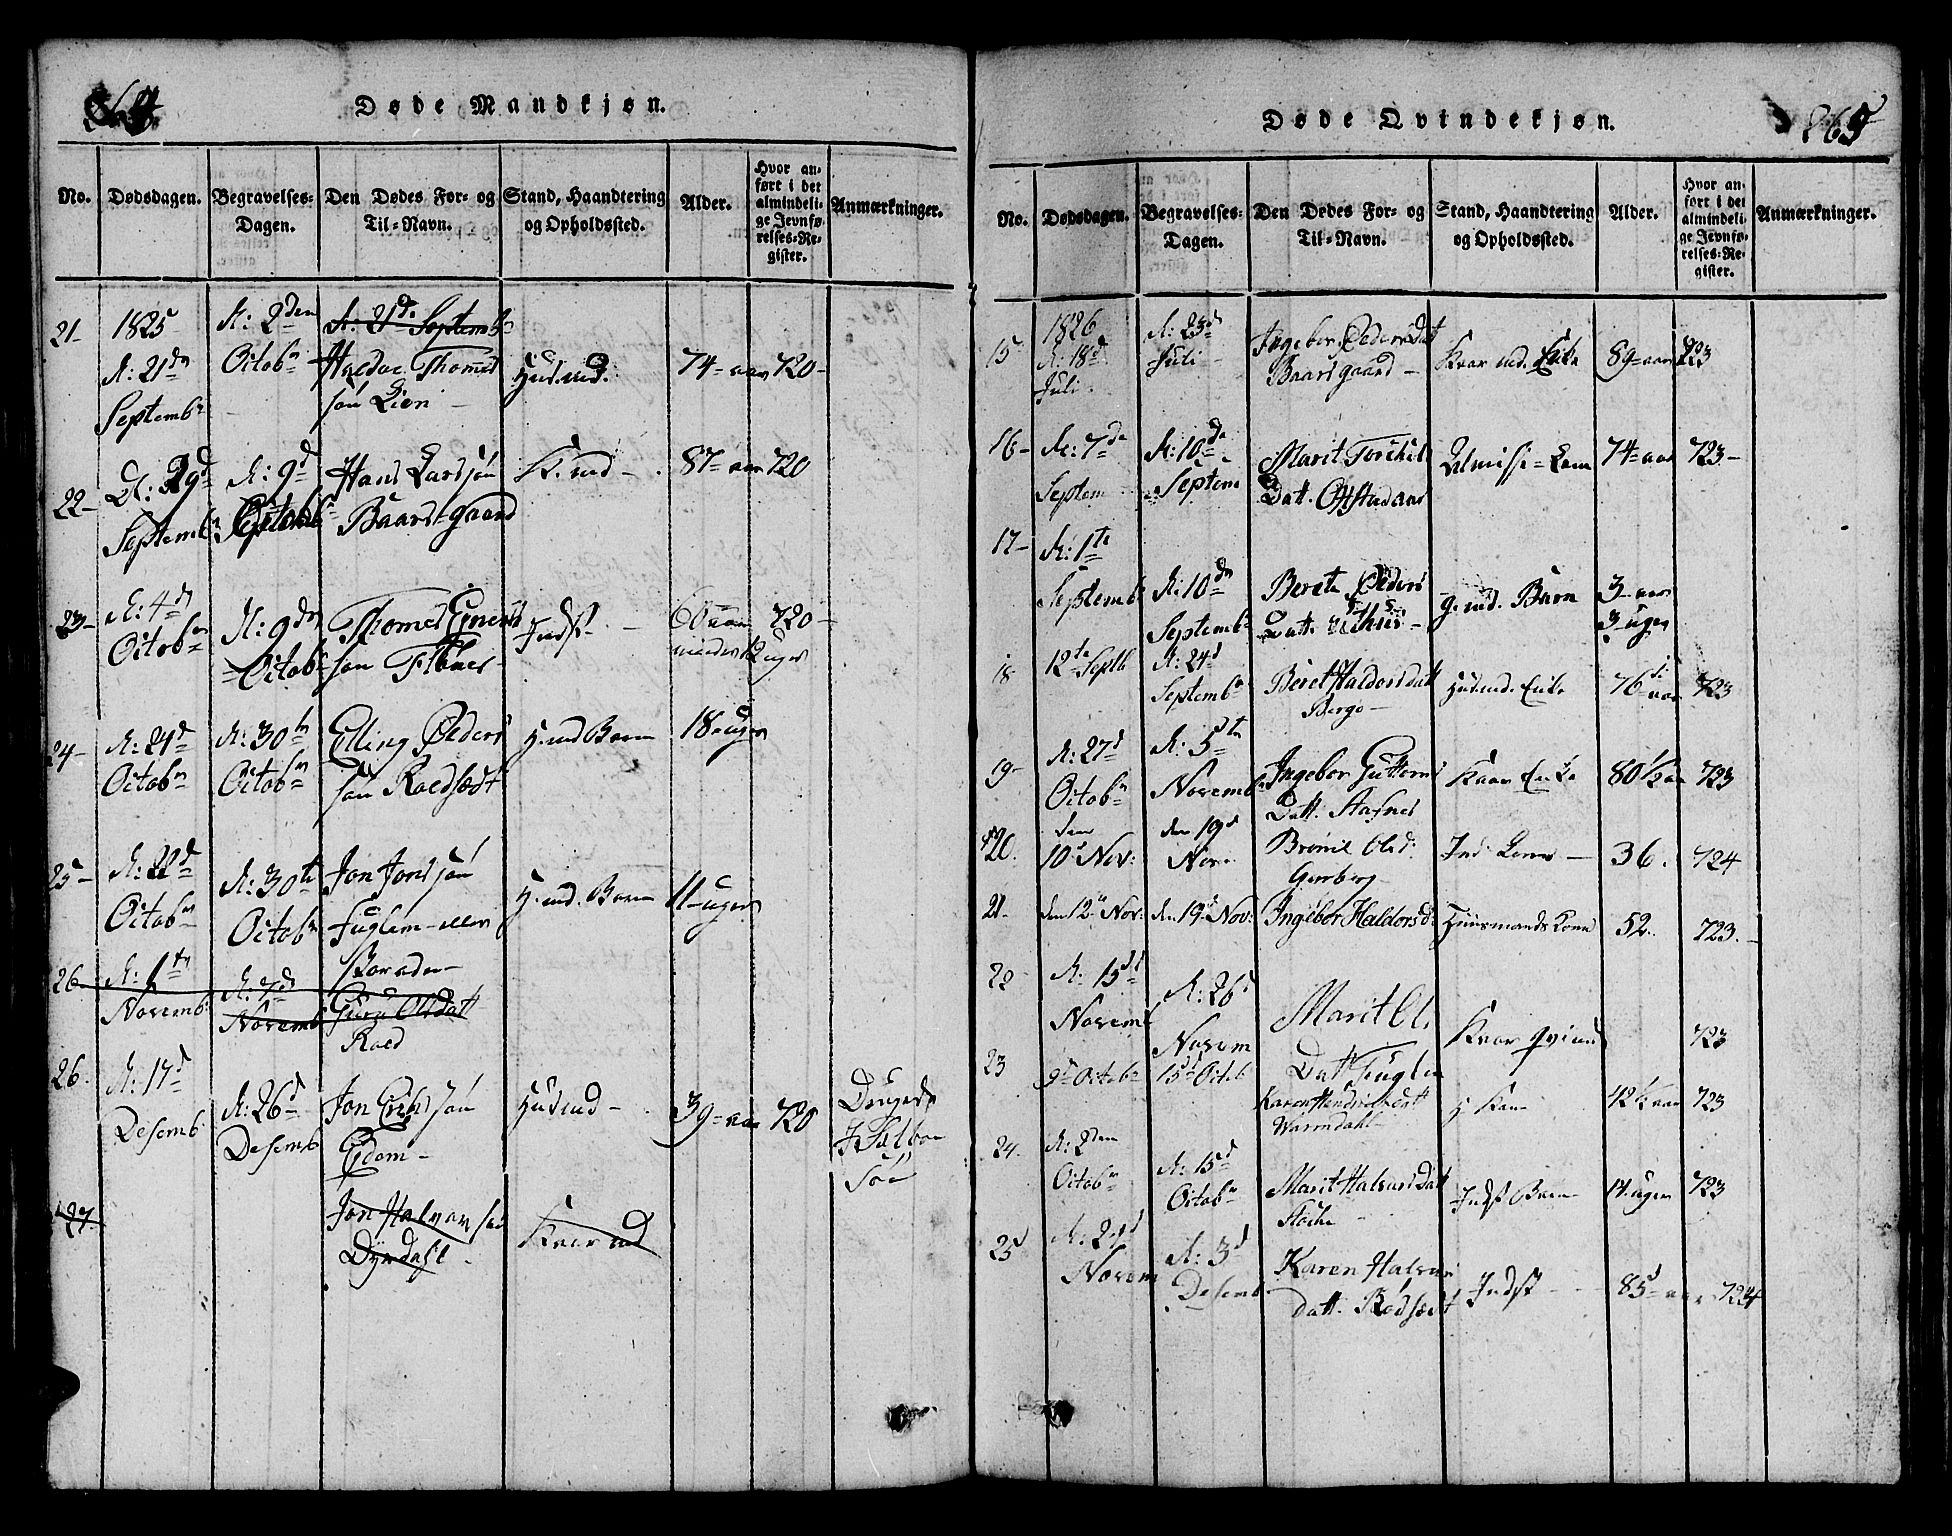 Døde Mandkjøn.
No.
Dødsdagen.
Begravelses-
Dagen.
Den Dødes For- og
Til-Navn.
Stand, Haandtering
og Opholdssted.
Alder.
Hvor an-
ført i det
almindeli-
ge Jevnfø-
relses-Re-
gister.
Anmærkninger.
21-
1825
d: 21de
Septembr
d: 2den
Octobr
d: 21de Septemb
Haldor Thomes
søn Lien
Husmd.
74-aar
720-
22-
D: 29d
Septembr
d: 9d
Octobr
Hans Larssøn
Baardsgaard
K. md-
87-aar
720
23-
d: 4de
Octobr
d: 9de
Octobr
Thomes
søn
Indst-
60 aar
720-
24-
d: 24d
Octobr
d: 30te
Octobr
Elling Peders
søn Roedsædt
H. md Barn
18-uger
25-
d: 22d
Octobr
d: 30te
Octobr
Jon Jonssøn
Fuglem-eller
H. md. Barn
11-uger
26
d: 1te
Novemb:
d: 7d
Novemb
Guru Olsdatt
Roed
26.
d: 17d
Desemb:
d: 26d
Desemb
Jon Erichssøn
Eidem-
Husmd-
39-aar
720
I Sælboe
Søe
27.
Jon Halvorsen
Dyrdahl
Kaar md
Døde Qvindekjøn.
865
No.
Dødsdagen.
Begravelses-
Dagen.
Den Dødes For- og
Til-Navn.
Stand, Haandtering
og Opholdssted.
Alder.
Hvor an-
ført i det
almindeli-
ge Jevnfø-
relses-Re-
gister.
Anmærkninger.
15
1826
d: 18d
Juli
d: 23d
Juli
Ingebor Pedersdat
Baardsgaard-
Kaar md. Enke
89-aar
723
16-
d: 7de
Septem
d: 10de
Septem
Marit Torchel
Datt.
74-aar
723-
17-
d: 1te
Septemb
d: 10de
Septemb
Beret Peders
Datt.
g. md. Barn
3-aar
3-uger
18
12te Septb
d: 24d
Septembr
Beret Haldorsdatt
Berge-
Husmd. Enke
76-aar
723
19-
d: 27d
Octobr
d: 5te
Novemb
Ingebor Guttorms
Datt. Stafnes
Kaar Enke
80½ aar
723
20.
den
10d Nov:
den 19d
Nov:
Olsd:
Garberg
Ind: Kone-
36.
724
21-
den 12te Nov:
den 19de Nov:
Ingebor Haldorsd:
Huusmands Kone
52.
723.-
22
d. 15de
Novemb
d: 26d
Novem
Marit Ol.
Datt Fugle
Kaar qvind
723
23
9d Octobr
15d Octob
Karen Hendrichsdatt
Warmdahl
H Kone
42½ aar
723
24.
d: 2den
Octobr
d: 15d
Octobr
Marit Halvorsdatt
Indst Barn-
14. uger
723
25
d. 24d
Novem
d: 3d
Desemb-
Karen Halvor
datt. Rødsædt
Indst-
85-aar
724